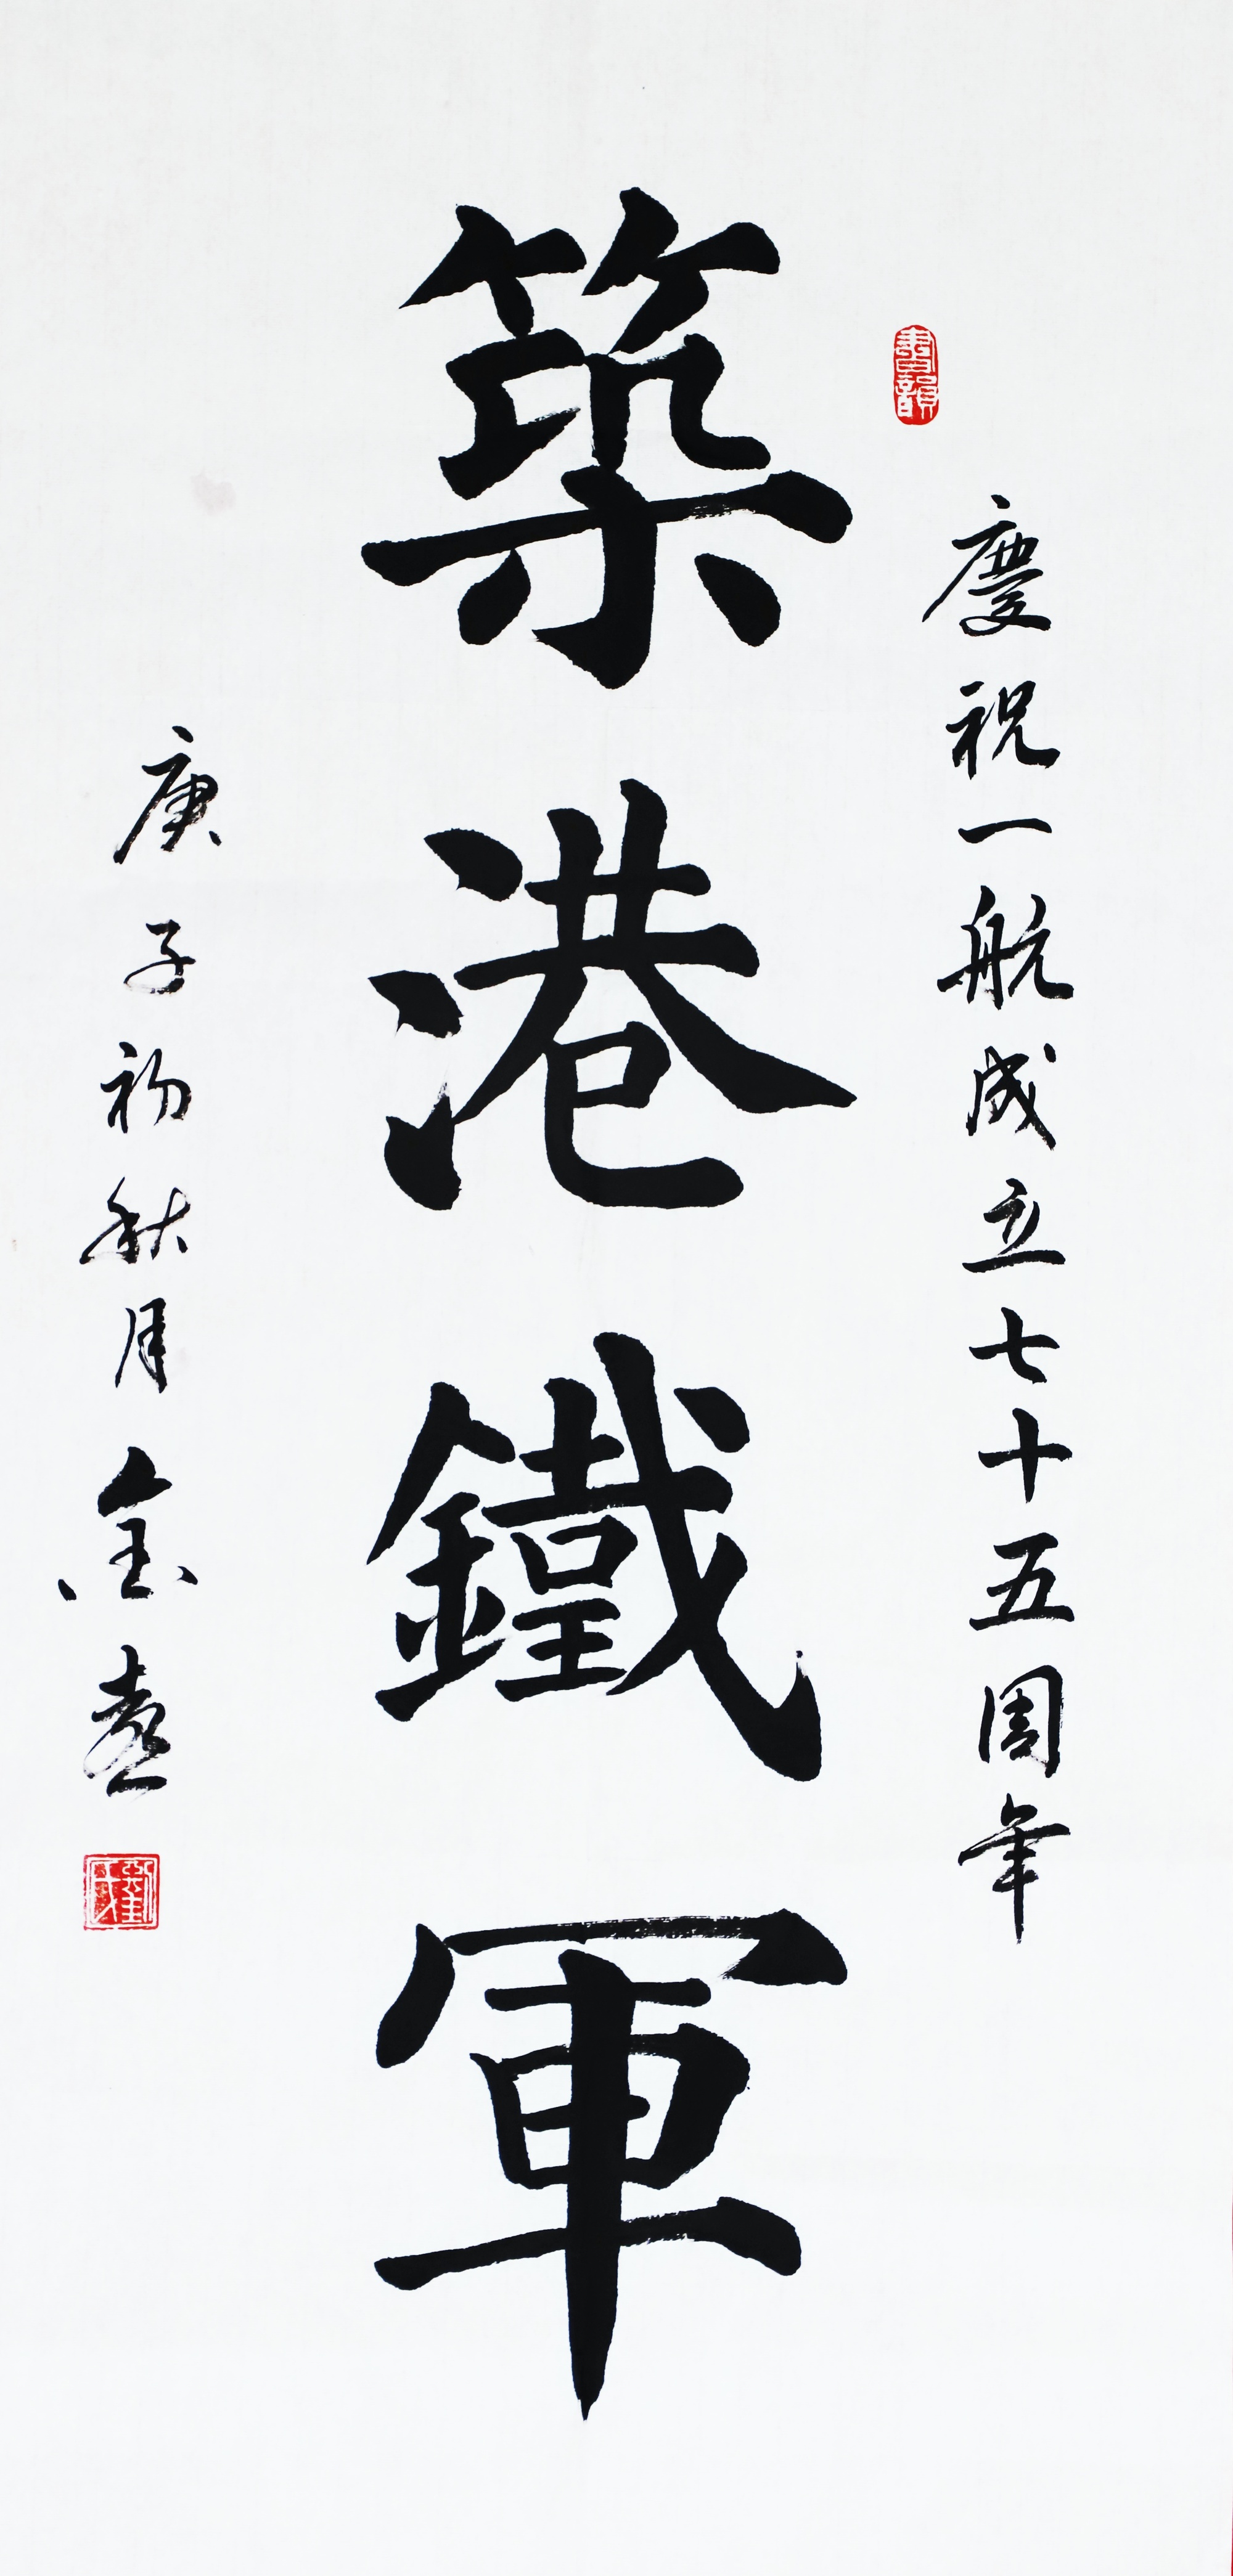 書韻
慶祝一航成立七十五周年
築港鐵軍
庚子初秋月金喜